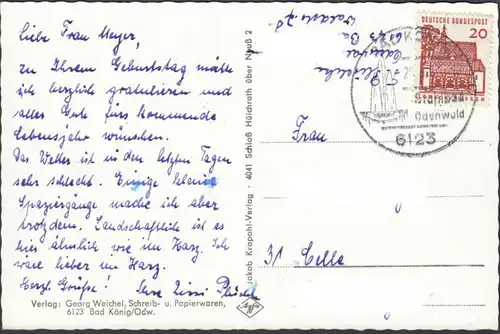 liebe Frau Meyer,
zu Ihrem Geburtstag möchte
ich herzlich gratulieren und
alles Gute fürs kommende
Lebensjahr wünschen.
Das Wetter ist in den letzten Tagen
sehr schlecht. Einige kleine
Spaziergänge mache ich aber
trotzdem. Landschaftlich ist es
hier ähnlich wie im Harz. Ich
wäre lieber im Harz.
Herzl. Grüße! Ihre
Verlag: Georg Weichel, Schreib- u. Papierwaren,
6123 Bad König/Odw.
Jakob Krapohl-Verlag · 4041 Schloß Hülchrath über Neuß 2
DEUTSCHE BUNDESPOST
20
Odenwald
6123
Frau
31 Celle